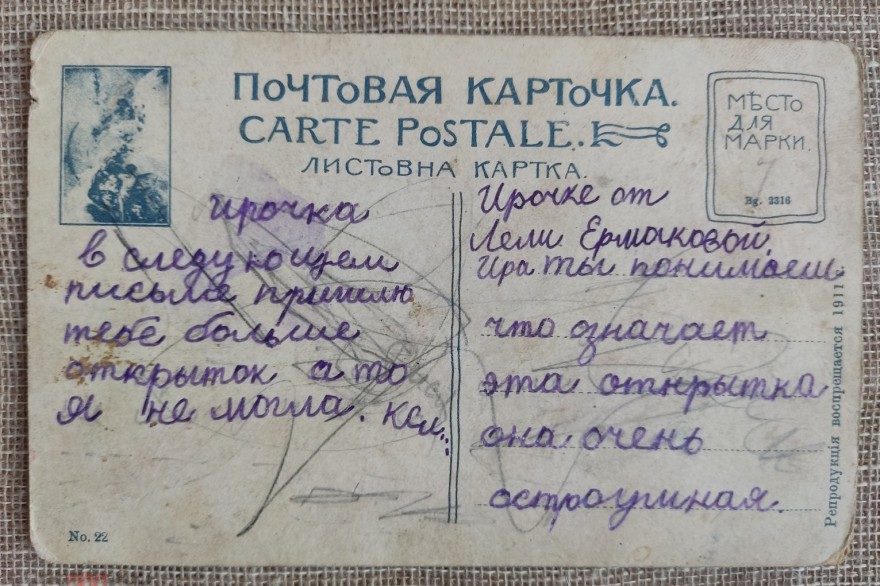 ПОЧТОВАЯ КАРТОЧКА.
CARTE POSTALE.
ЛИСТОВНА КАРТКА.
МѢСТО
ДЛЯ
МАРКИ.
7
Bg. 2316
Ирочка
в следующем
письме пришлю
тебе больше
открыток а то
я не могла.
Ирочке от
Лели Ермаковой.
Ира ты понимаеш
что означает
эта открытка
она очень
остроумная.
No. 22
Репродукція воспрещается 1911